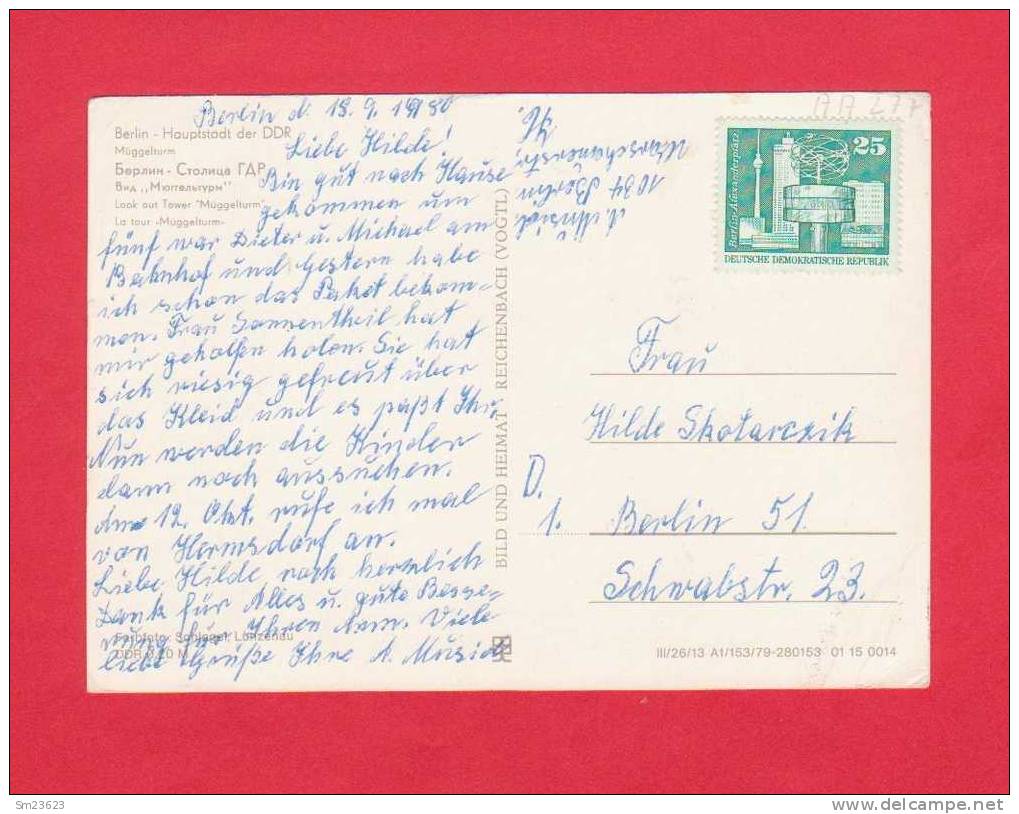 Berlin d. 18.9.1980
Berlin - Hauptstadt der DDR
Müggelturm
Берлин - Столица ГДР
Вид „Мюггельтурм"
Look out Tower "Müggelturm"
La tour »Müggelturm«
Liebe Hilde!
Bin gut nach Hause
gekommen um
fünf war Dieter u. Michael am
Bahnhof und gestern habe
ich schon das Paket bekom-
men. Frau Sonnentheil hat
mir geholfen holen. Sie hat
sich riesig gefreut über
das Kleid und es paßt Ihr
Nun werden die Kinder
dann noch aussuchen.
Am 12. Okt. rufe ich mal
von Hermsdorf an.
Liebe Hilde noch herzlich
Dank für Alles u. gute Besse-
rung für Ihren Arm. Viele
liebe Grüße Ihne A. Musiol
Farbfoto: Schlegel, Lunzenau
DDR 0,20 M
A. Musiol
1034 Berlin
Warschauerstr.
BILD UND HEIMAT REICHENBACH (VOGTL)
AA 277
25
Berlin-Alexanderplatz
DEUTSCHE DEMOKRATISCHE REPUBLIK
Frau
Hilde Skotarczik
D.
1. Berlin 51.
Schwabstr. 23.
III/26/13 A1/153/79-280153 01 15 0014
Sm23623
delcampe.net